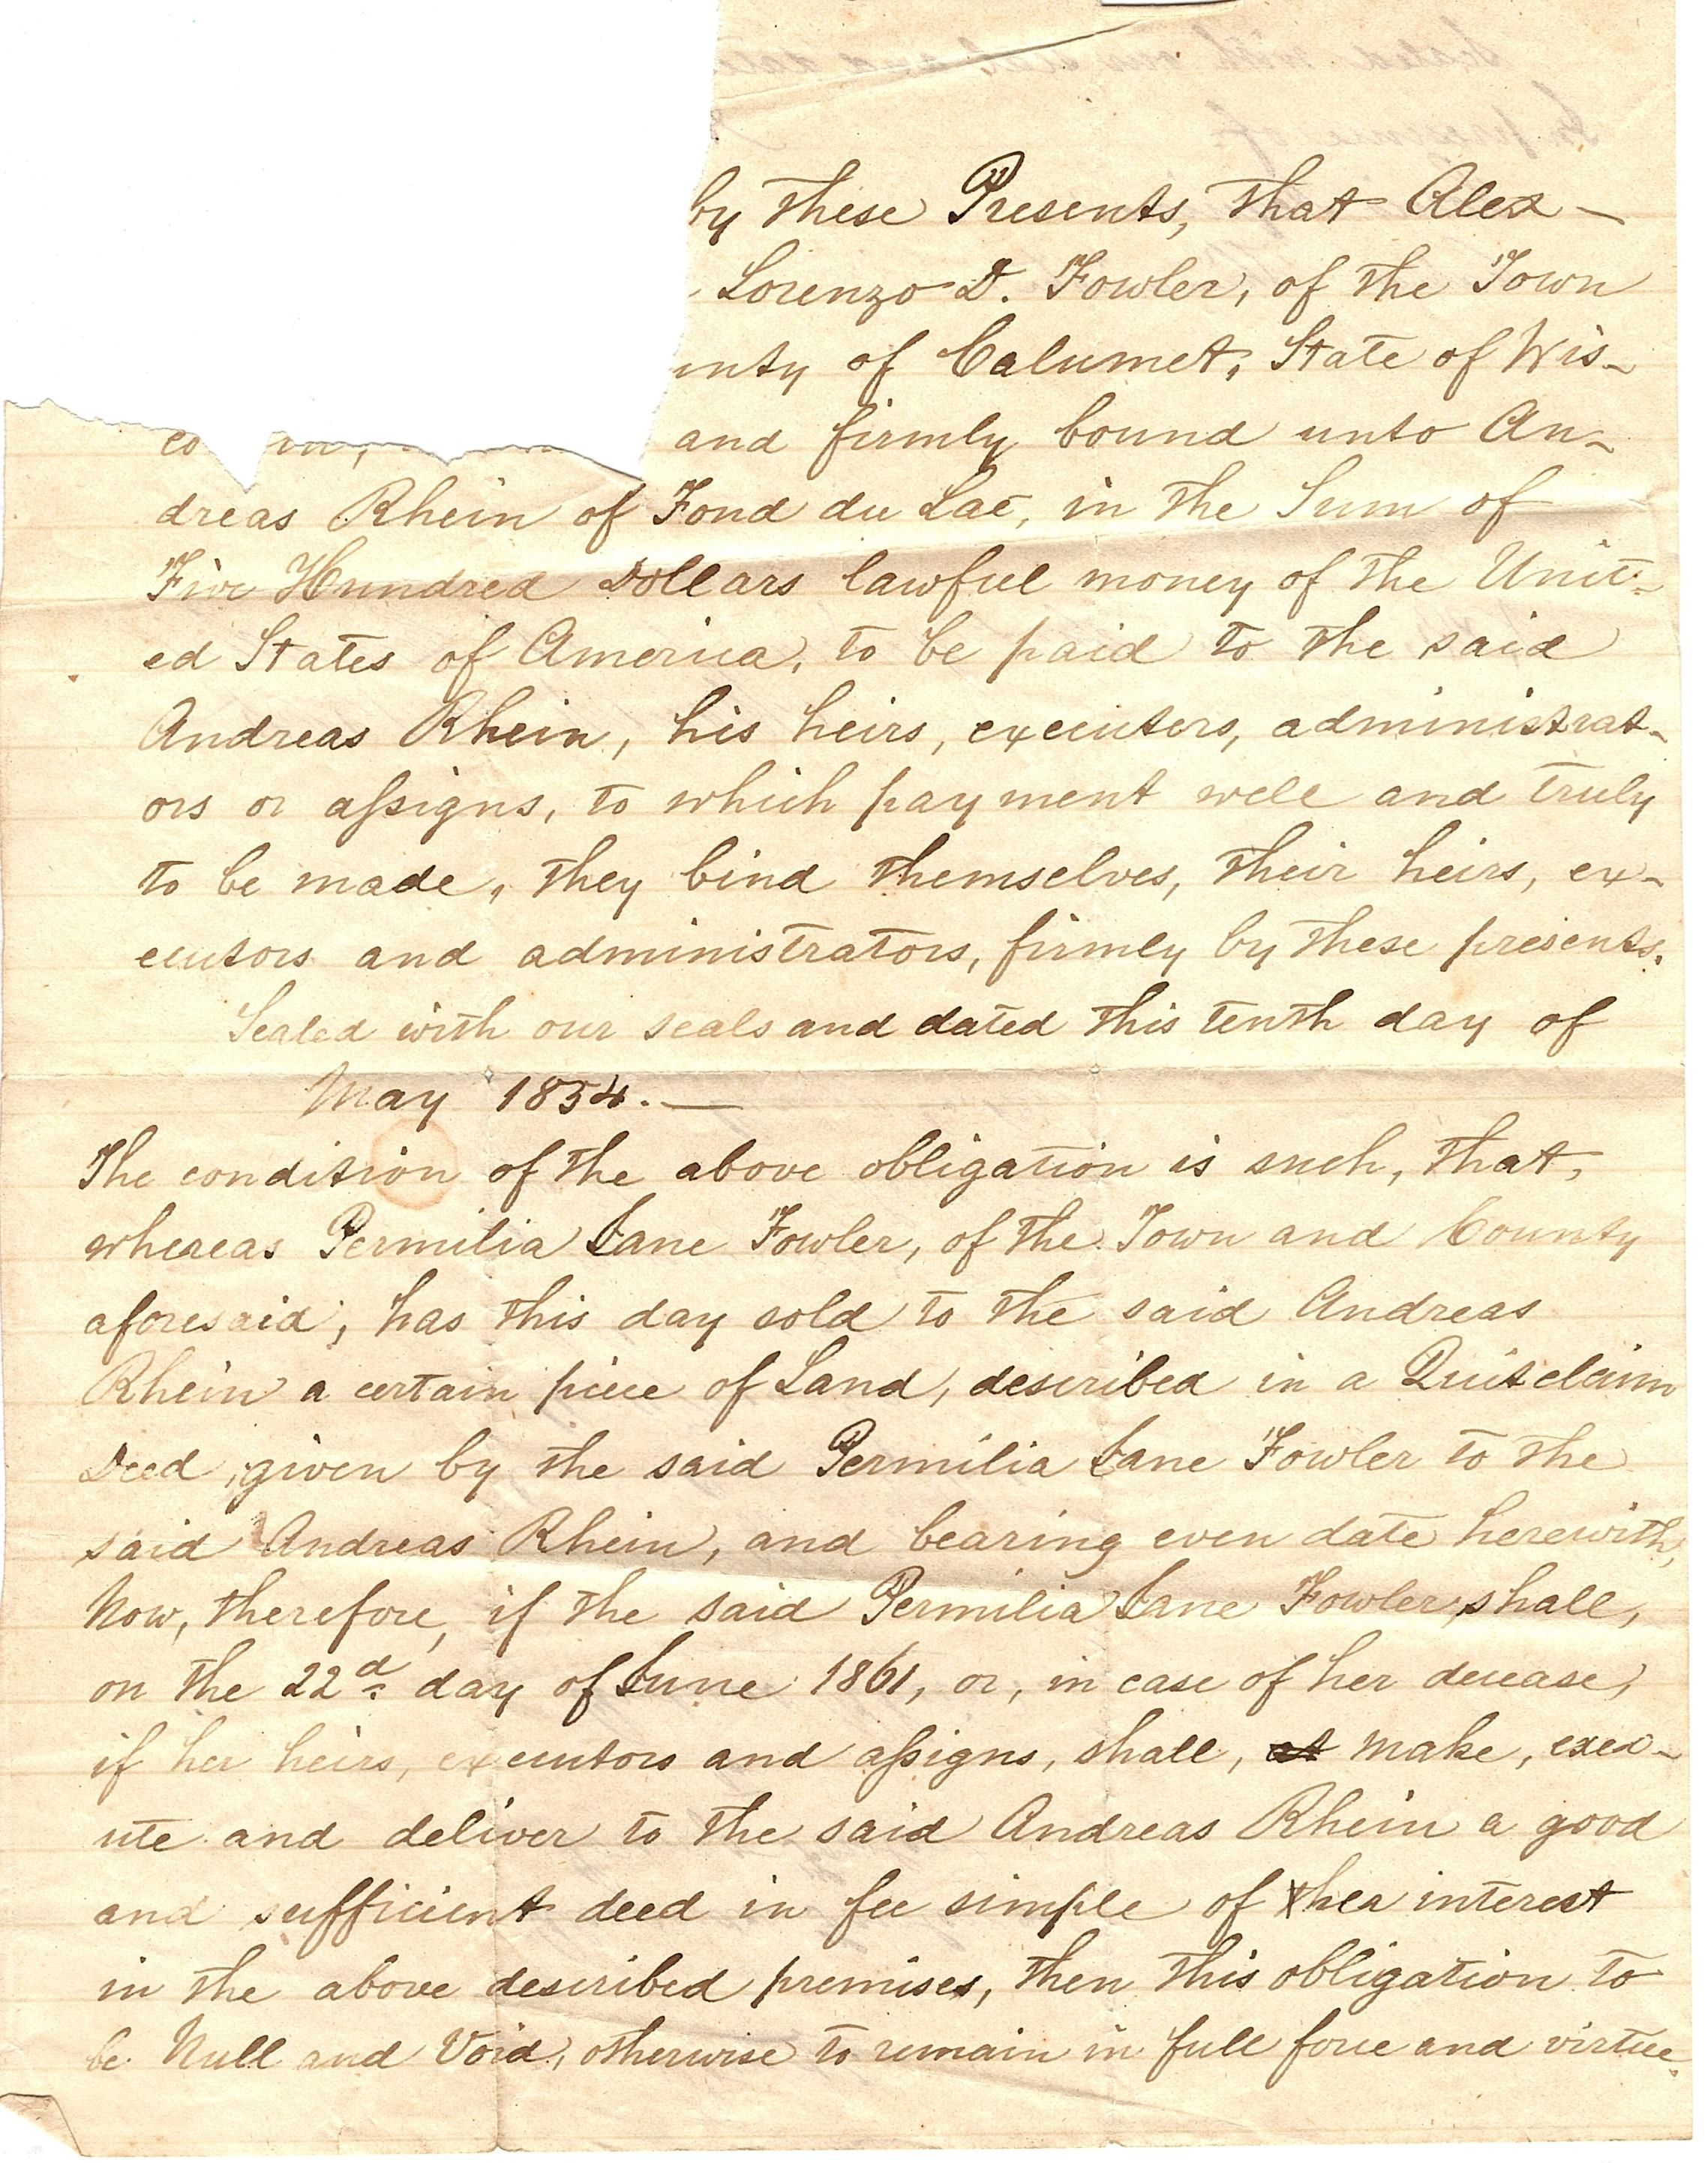 by these Presents, that Alex-
Lorenzo D. Fowler, of the Town
unty of Calumet, State of Wis-
co in, and firmly bound unto An-
dreas Rhein of Fond du Lac, in the Sum of
Five Hundred Dollars lawful money of the Unit-
ed States of America, to be paid to the said
Andreas Rhein, his heirs, executors, administrat-
ors or assigns, to which payment well and truly
to be made, they bind themselves, their heirs, ex-
ecutors and administrators, firmly by these presents.
Sealed with our seals and dated this tenth day of
May 1854. —
The condition of the above obligation is such, that,
whereas Permilia Jane Fowler, of the Town and County
aforesaid, has this day sold to the said Andreas
Rhein a certain piece of Land, described in a Quitclaim
Deed, given by the said Permilia Jane Fowler to the
said Andreas Rhein, and bearing even date herewith,
Now, therefore, if the said Permilia Jane Fowler, shall,
on the 22d day of June 1861, or, in case of her decease,
if her heirs, executors and assigns, shall, make, exec-
ute and deliver to the said Andreas Rhein a good
and sufficient deed in fee simple of her interest
in the above described premises, then this obligation to
be Null and Void, otherwise to remain in full force and virtue.